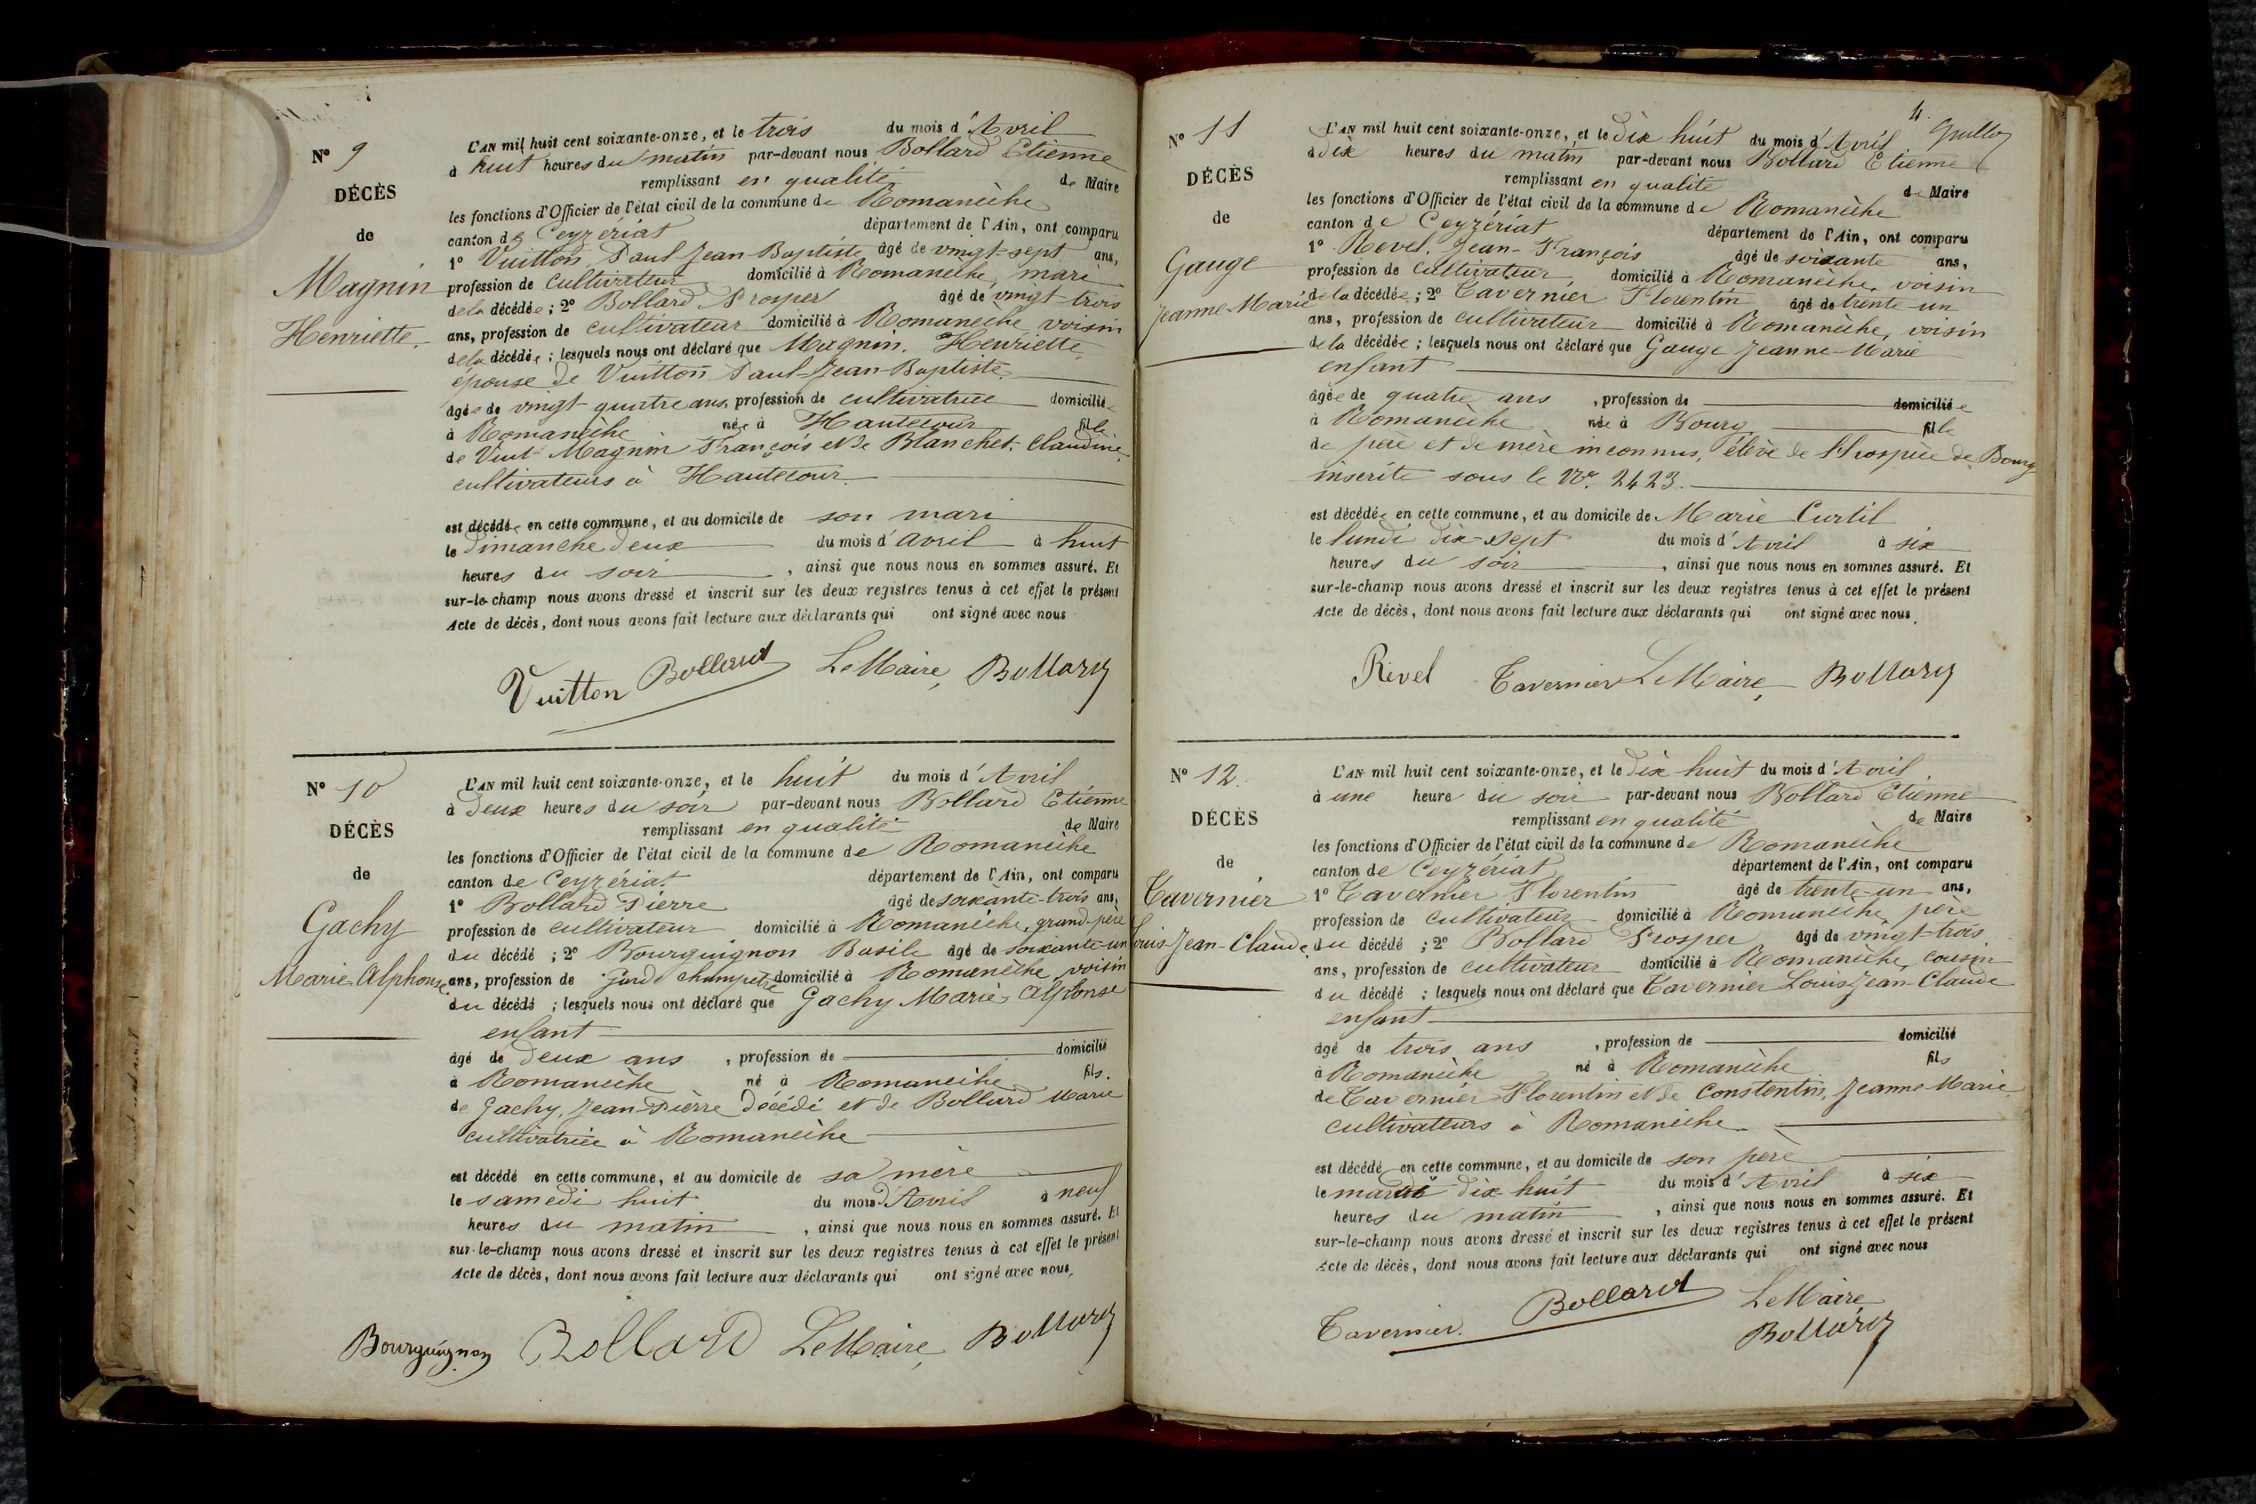 N° 9
DÉCÈS
de
Magnin
Henriette.
L'AN mil huit cent soixante-onze, et le trois du mois d'Avril
à huit heures du matin par-devant nous Bollard Etienne
remplissant en qualité de Maire
les fonctions d'Officier de l'état civil de la commune de Romanèche
canton de Ceyzériat département de l'Ain, ont comparu
1° Vuitton Paul Jean Baptiste âgé de vingt-sept ans,
profession de cultivateur domicilié à Romanèche, mari
de la décédée ; 2° Bollard Prosper âgé de vingt-trois
ans, profession de cultivateur domicilié à Romanèche, voisin
de la décédée ; lesquels nous ont déclaré que Magnin, Henriette,
épouse de Vuitton Paul-Jean-Baptiste.
âgée de vingt-quatre ans, profession de cultivatrice domiciliée
à Romanèche née à Hautecour fille
de Magnin François et de Blanchet, Claudine,
cultivateurs à Hautecour.
est décédée en cette commune, et au domicile de son mari
le dimanche deux du mois d'avril à huit
heures du soir, ainsi que nous nous en sommes assuré. Et
sur-le-champ nous avons dressé et inscrit sur les deux registres tenus à cet effet le présent
Acte de décès, dont nous avons fait lecture aux déclarants qui ont signé avec nous
Vuitton Bollard Le Maire, Bollard
N° 10
DÉCÈS
de
Gachy
Marie-Alphonse
L'AN mil huit cent soixante-onze, et le huit du mois d'Avril
à deux heures du soir par-devant nous Bollard Etienne
remplissant en qualité de Maire
les fonctions d'Officier de l'état civil de la commune de Romanèche
canton de Ceyzériat département de l'Ain, ont comparu
1° Bollard Pierre âgé de soixante-trois ans,
profession de cultivateur domicilié à Romanèche, grand-père
du décédé ; 2° Bourguignon Basile âgé de soixante-un
ans, profession de garde champêtre domicilié à Romanèche, voisin
du décédé ; lesquels nous ont déclaré que Gachy Marie-Alphonse
enfant
âgé de deux ans, profession de domicilié
à Romanèche né à Romanèche fils.
de Gachy, Jean-Pierre décédé et de Bollard Marie
cultivatrice à Romanèche
est décédé en cette commune, et au domicile de sa mère
le samedi huit du mois d'Avril à neuf
heures du matin, ainsi que nous nous en sommes assuré. Et
sur-le-champ nous avons dressé et inscrit sur les deux registres tenus à cet effet le présent
Acte de décès, dont nous avons fait lecture aux déclarants qui ont signé avec nous.
Bourguignon Bollard Le Maire, Bollard
4.
N° 11
DÉCÈS
de
Gauge
Jeanne-Marie
L'AN mil huit cent soixante-onze, et le dix huit du mois d'Avril
à dix heures du matin par-devant nous Bollard Etienne
remplissant en qualité de Maire
les fonctions d'Officier de l'état civil de la commune de Romanèche
canton de Ceyzériat département de l'Ain, ont comparu
1° Revel, Jean-François âgé de soixante ans,
profession de cultivateur domicilié à Romanèche, voisin
de la décédée ; 2° Tavernier Florentin âgé de trente-un
ans, profession de cultivateur domicilié à Romanèche, voisin
de la décédée ; lesquels nous ont déclaré que Gauge Jeanne-Marie
enfant
âgée de quatre ans, profession de domiciliée
à Romanèche née à Bourg fille
de père et de mère inconnus, élève de l'hospice de Bourg
inscrite sous le N° 2423.
est décédée en cette commune, et au domicile de Marie Curtil
le lundi dix-sept du mois d'Avril à six
heures du soir, ainsi que nous nous en sommes assuré. Et
sur-le-champ nous avons dressé et inscrit sur les deux registres tenus à cet effet le présent
Acte de décès, dont nous avons fait lecture aux déclarants qui ont signé avec nous.
Revel Tavernier Le Maire, Bollard
N° 12.
DÉCÈS
de
Tavernier
Louis-Jean-Claude.
L'AN mil huit cent soixante-onze, et le dix huit du mois d'Avril
à une heure du soir par-devant nous Bollard Etienne
remplissant en qualité de Maire
les fonctions d'Officier de l'état civil de la commune de Romanèche
canton de Ceyzériat département de l'Ain, ont comparu
1° Tavernier Florentin âgé de trente-un ans,
profession de cultivateur domicilié à Romanèche père
du décédé ; 2° Bollard Prosper âgé de vingt-trois
ans, profession de cultivateur domicilié à Romanèche, cousin
du décédé ; lesquels nous ont déclaré que Tavernier Louis Jean-Claude
enfant
âgé de trois ans, profession de domicilié
à Romanèche né à Romanèche fils
de Tavernier Florentin et de Constentin, Jeanne-Marie
cultivateurs à Romanèche.
est décédé en cette commune, et au domicile de son père
le mardi dix-huit du mois d'Avril à six
heures du matin, ainsi que nous nous en sommes assuré. Et
sur-le-champ nous avons dressé et inscrit sur les deux registres tenus à cet effet le présent
Acte de décès, dont nous avons fait lecture aux déclarants qui ont signé avec nous
Tavernier. Bollard Le Maire
Bollard